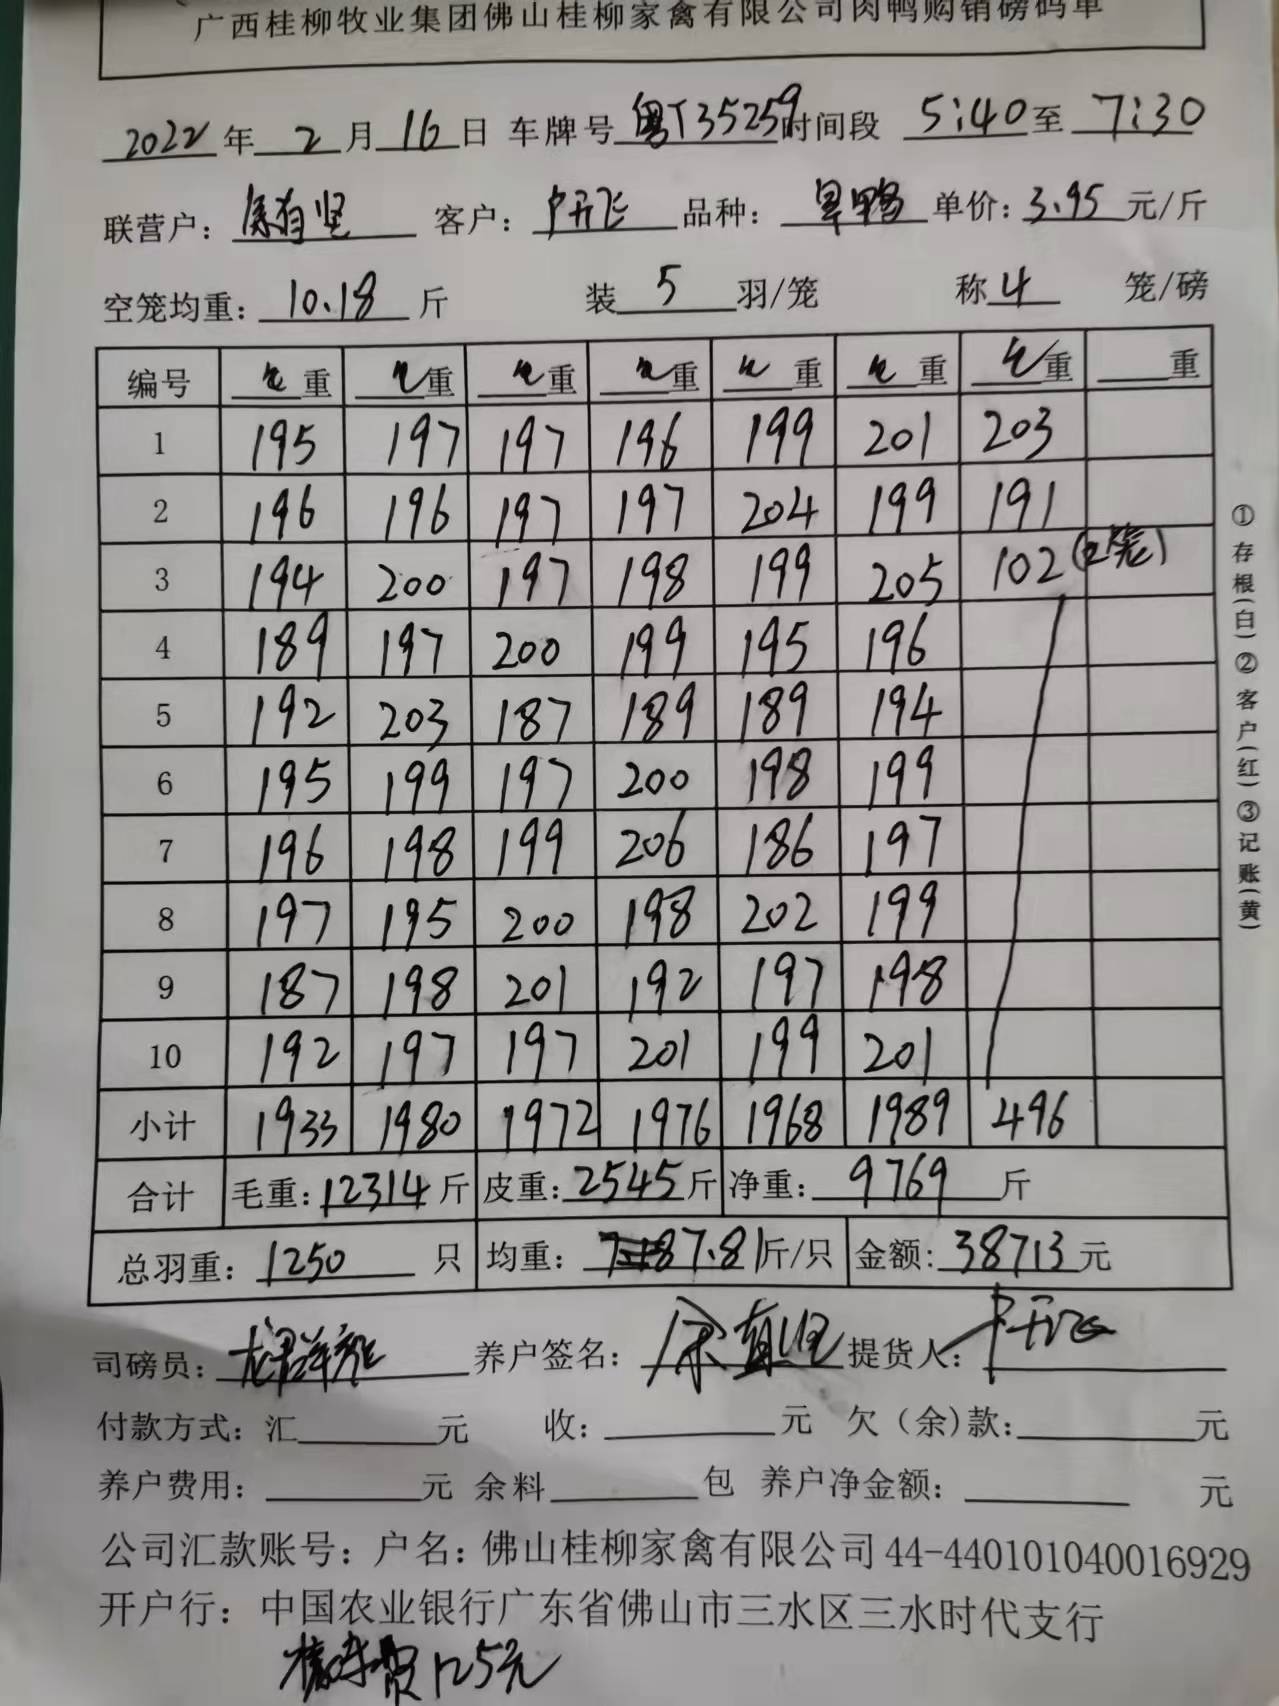 广西桂柳牧业集团佛山桂柳家禽有限公司肉鸭购销磅码单
2022年 2月 16日 车牌号 粤T35259 时间段 5:40 至 7:30
联营户: 客户: 卢开飞 品种: 旱鸭 单价: 3.95 元/斤
空笼均重: 10.18 斤 装 5 羽/笼 称 4 笼/磅
编号 毛重 毛重 毛重 毛重 毛重 毛重 毛重 重
1 195 197 197 196 199 201 203
2 196 196 197 197 204 199 191
3 194 200 197 198 199 205 102 (2笼)
4 189 197 200 199 195 196
5 192 203 187 189 189 194
6 195 199 197 200 198 199
7 196 198 199 206 186 197
8 197 195 200 198 202 199
9 187 198 201 192 197 198
10 192 197 197 201 199 201
小计 1933 1980 1972 1976 1968 1989 496
合计 毛重: 12314 斤 皮重: 2545 斤 净重: 9769 斤
总羽重: 1250 只 均重: 7.81 斤/只 金额: 38713 元
司磅员: 养户签名: 提货人: 卢开飞
付款方式: 汇 元 收: 元 欠(余)款: 元
养户费用: 元 余料 包 养户净金额: 元
公司汇款账号: 户名: 佛山桂柳家禽有限公司 44-440101040016929
开户行: 中国农业银行广东省佛山市三水区三水时代支行
费125元
①存根(白)②客户(红)③记账(黄)